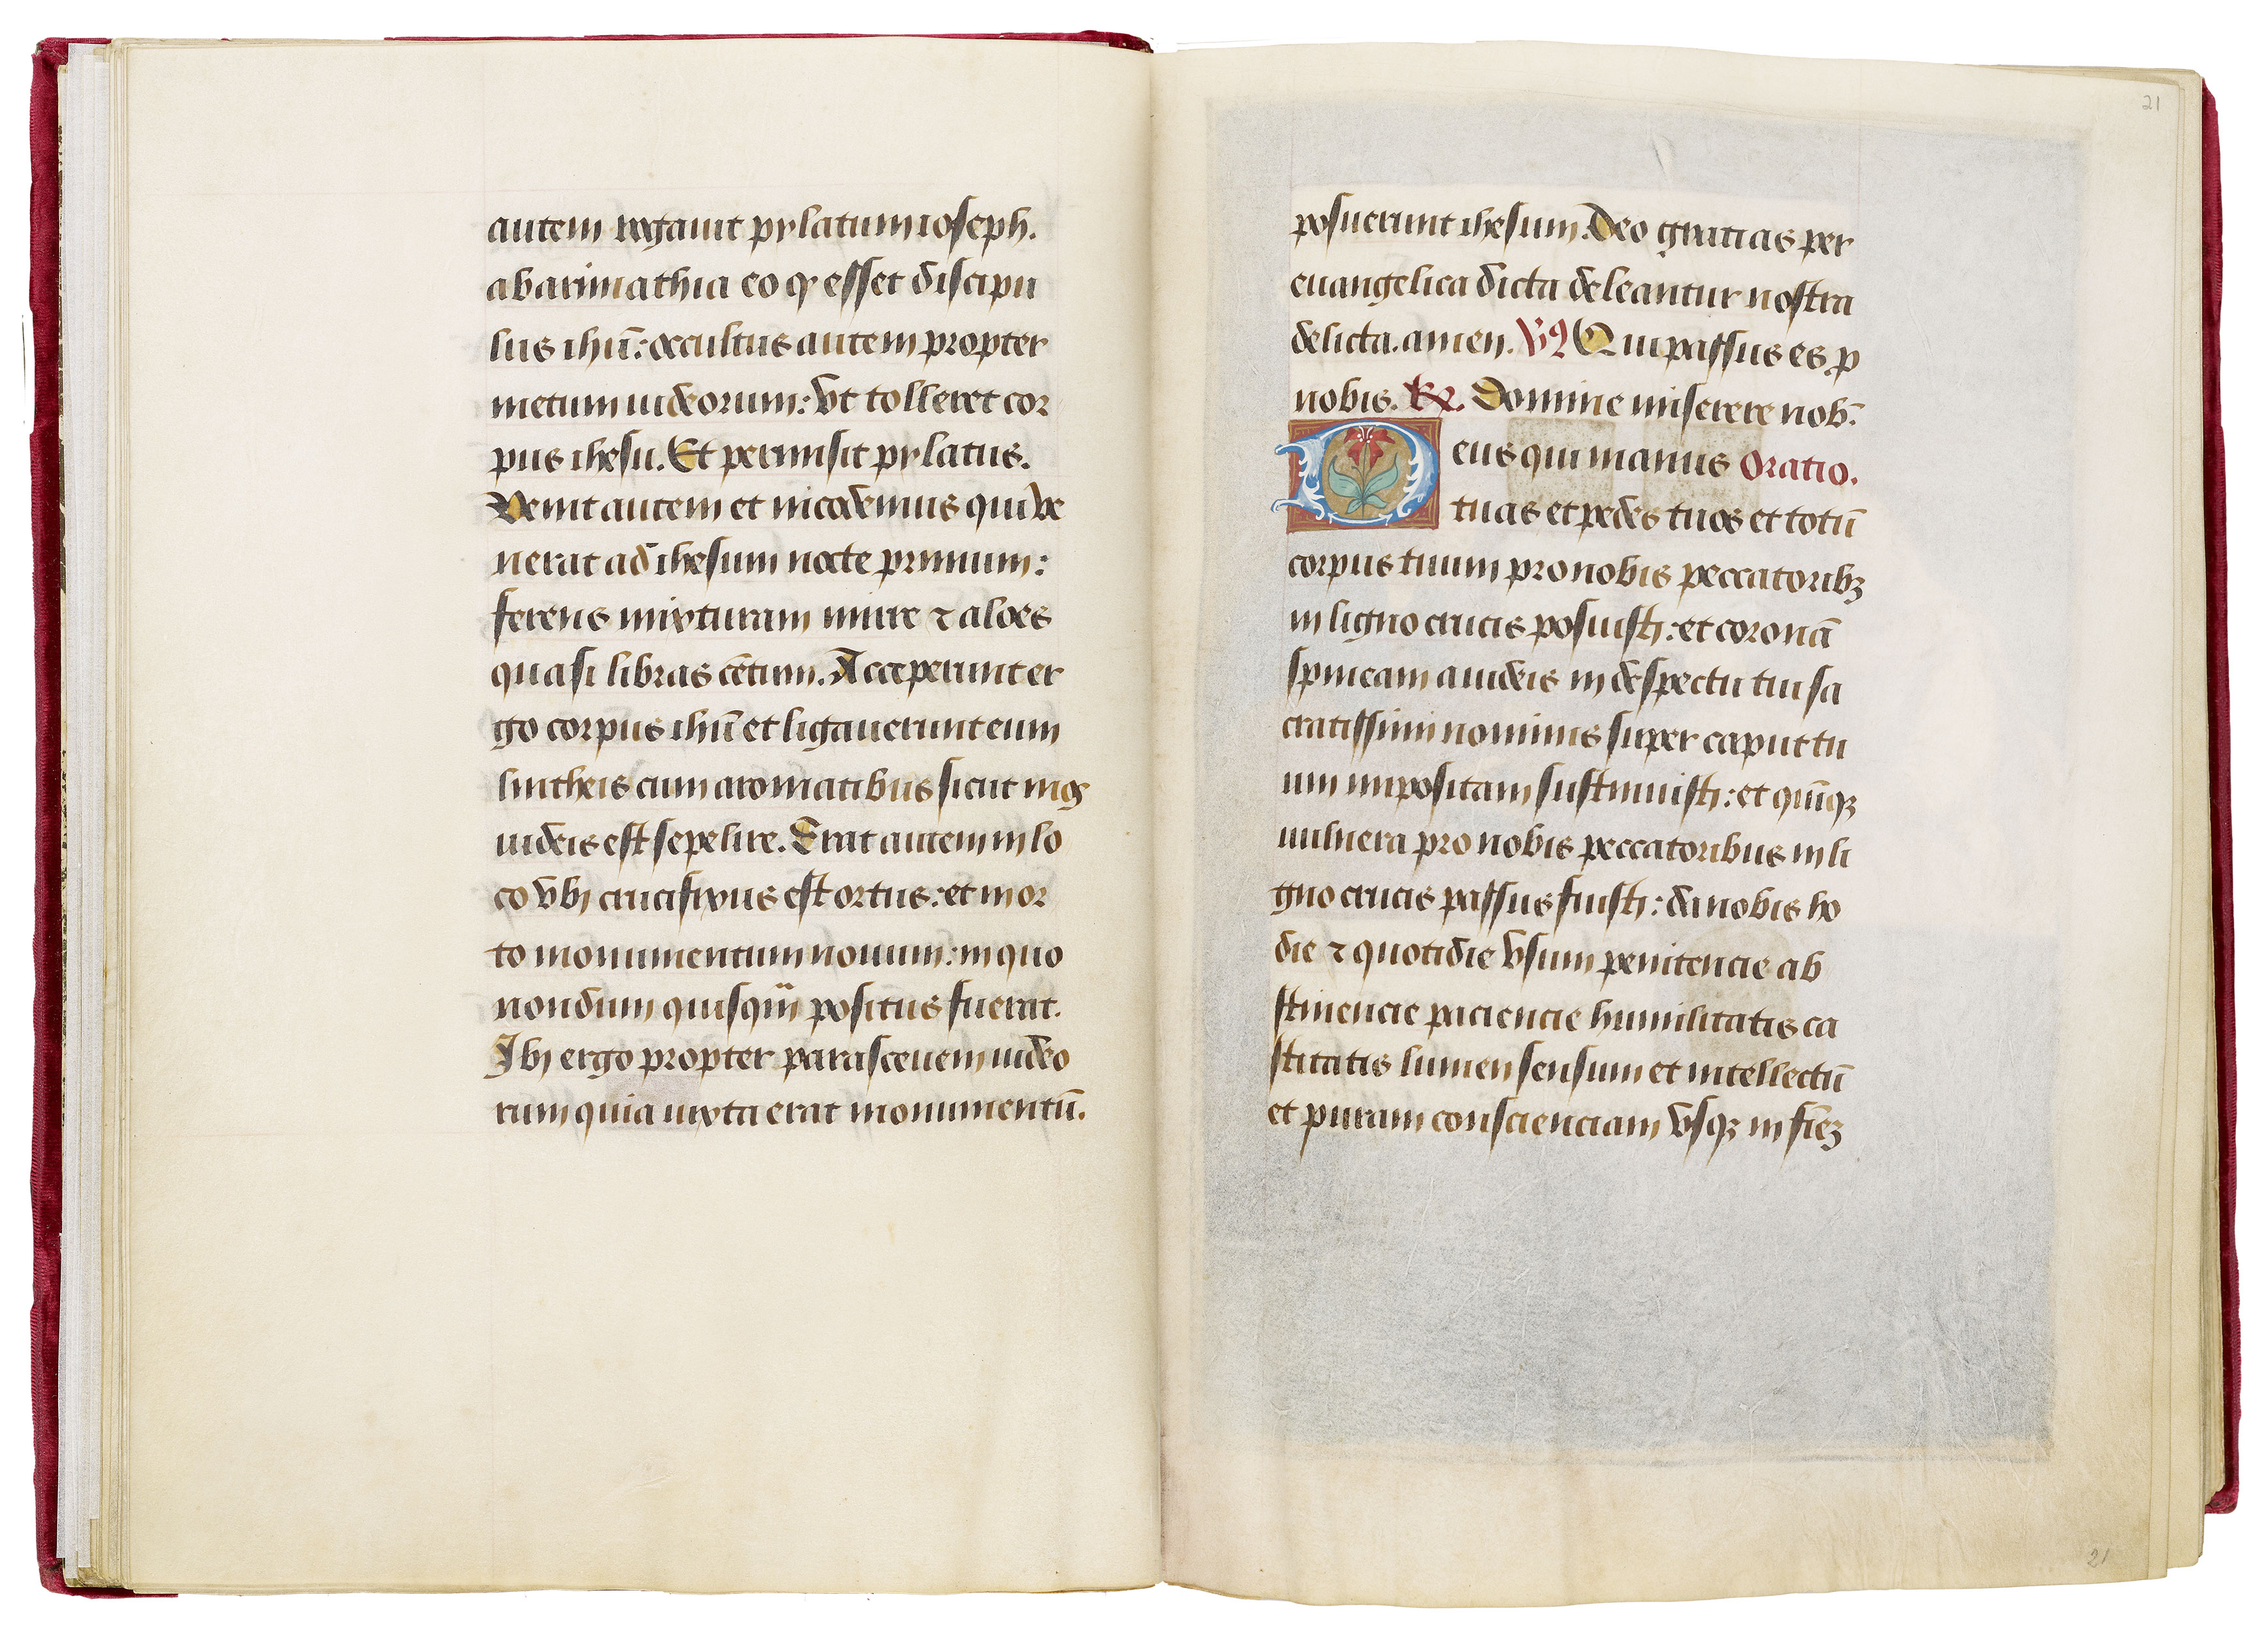 autem rogauit pylatum ioseph.
ab arimathia eo qꝫ esset discipu
lus ihū: occultus autem propter
metum iudeorum: vt tolleret cor
pus ihesu. Et permisit pylatus.
Venit autem et nicodemus qui ve
nerat ad ihesum nocte primum:
ferens mixturam mirre ⁊ aloes
quasi libras cētum. Acceperunt er
go corpus ihū et ligauerunt eum
lintheis cum aromatibus sicut mos
iudeis est sepelire. Erat autem in lo
co vbi crucifixus est ortus: et in or
to monumentum nouum: in quo
nondum quisqm̄ positus fuerat.
Ibi ergo propter parasceuem iudeo
rum quia iuxta erat monumentū.
21
posuerunt ihesum. Deo gratias per
euangelica dicta deleantur nostra
delicta. amen. V̛ Qui passus es p
nobis. ℟. Domine miserere nob̄.
Deus qui manus Oratio.
tuas et pedes tuos et totū
corpus tuum pro nobis peccatoribꝫ
in ligno crucis posuisti: et coronā
spineam a iudeis in despectu tui sa
cratissimi nominis super caput tu
um impositam sustinuisti: et quīqꝫ
uulnera pro nobis peccatoribus in li
gno crucis passus fuisti: da nobis ho
die ⁊ quotidie vsum penitencie ab
stinencie paciencie humilitatis ca
stitatis lumen sensum et intellectū
et puram conscienciam vsqꝫ in fiēꝫ
21